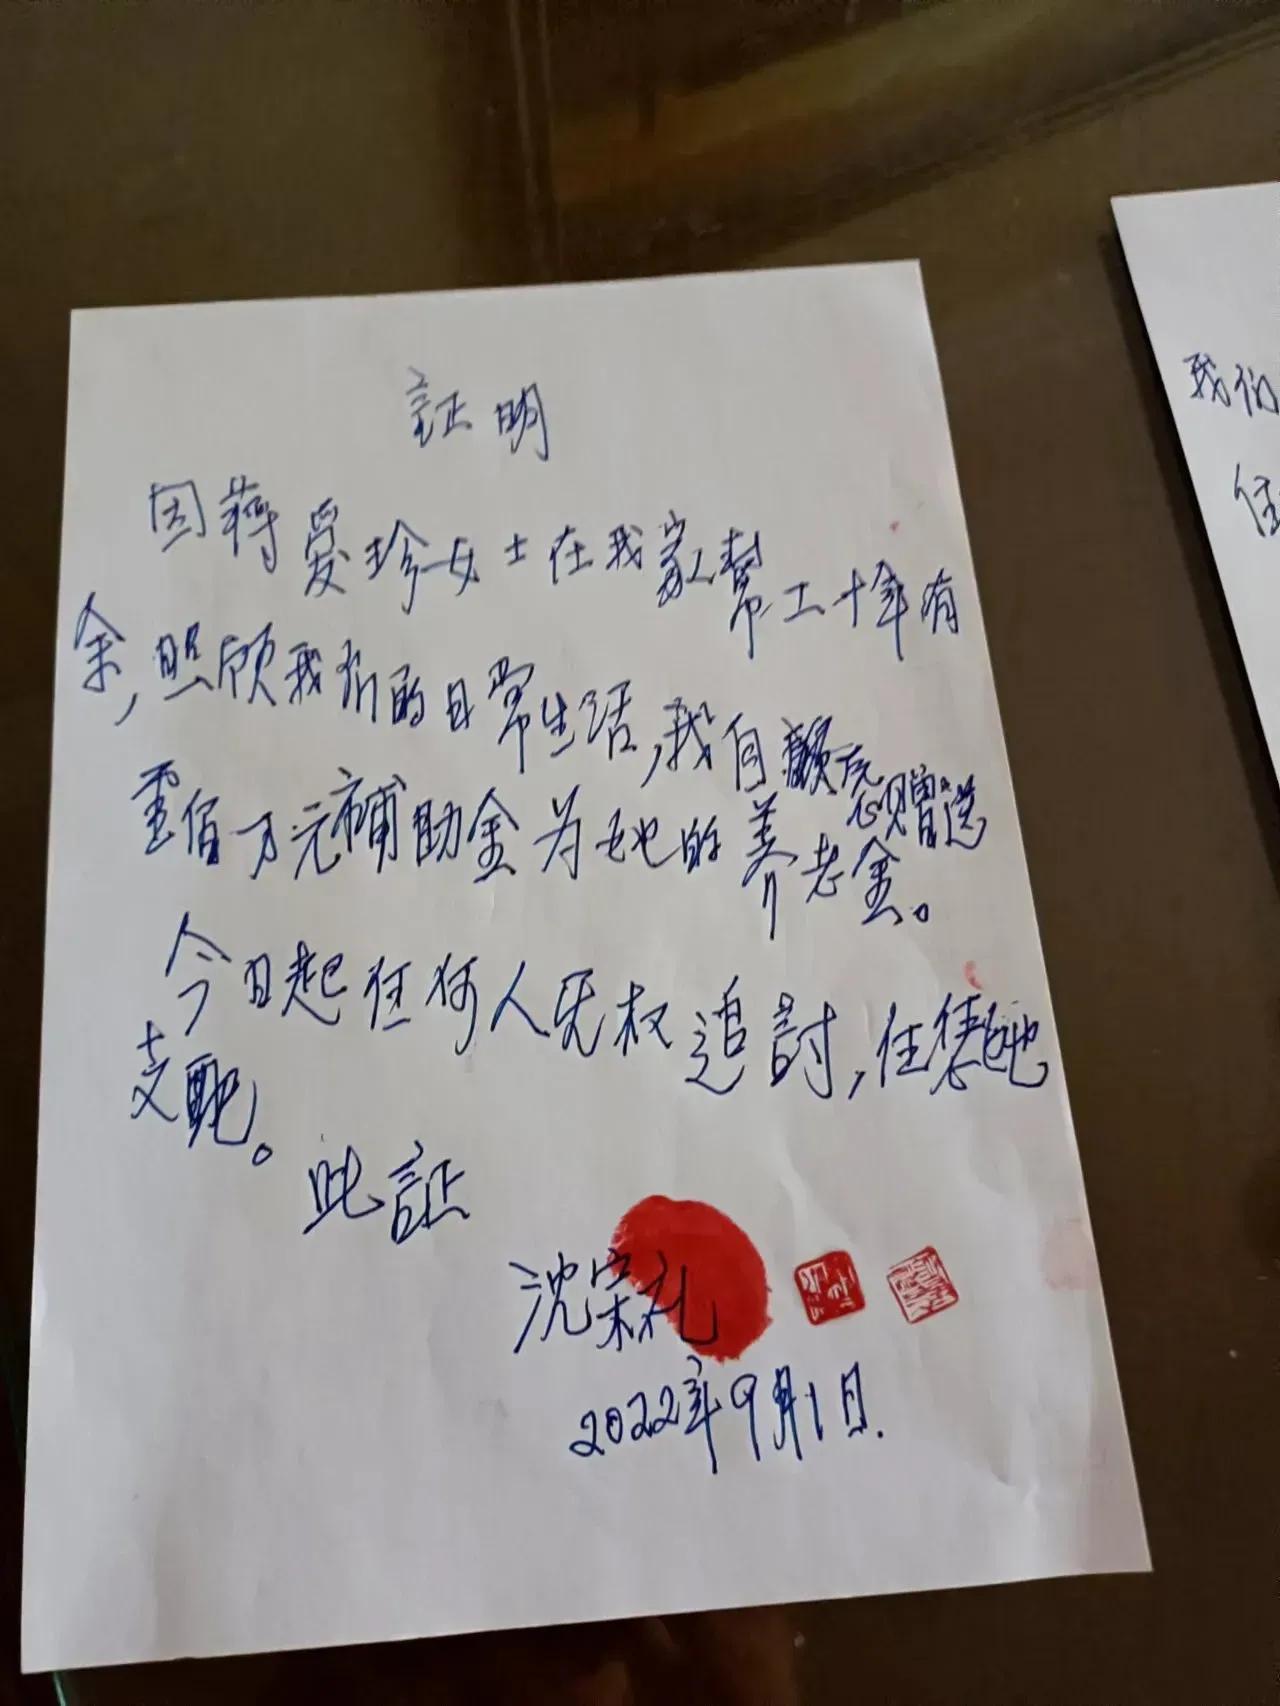 証明
因蒋愛珍女士在我家幫工十年有
余,照顾我们的日常生活,我自願赠送
壹佰万元補助金为她的养老金。
今日起任何人无权追討,任凭她
支配。
此証
沈宗礼
2022年9月1日.
我们
住